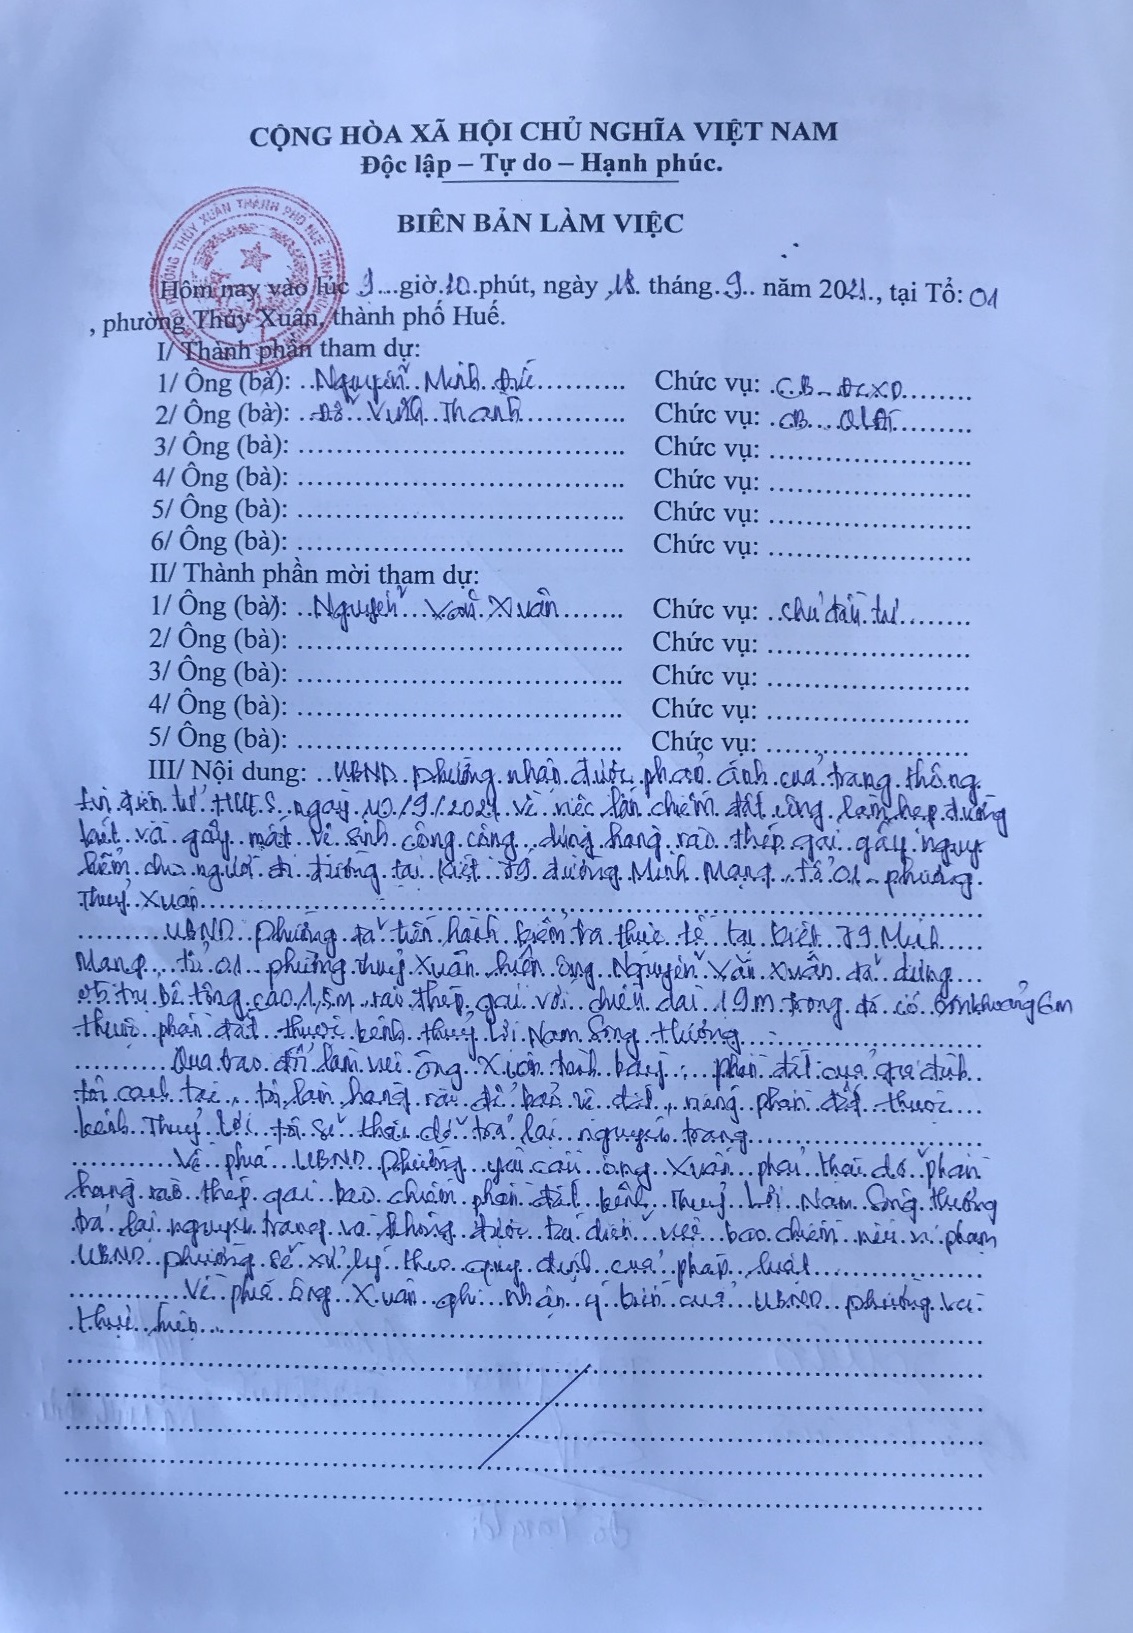 CỘNG HÒA XÃ HỘI CHỦ NGHĨA VIỆT NAM
Độc lập – Tự do – Hạnh phúc.
BIÊN BẢN LÀM VIỆC
Hôm nay vào lúc 9....giờ.10.phút, ngày 18. tháng.9.. năm 2021., tại Tổ: 01
, phường Thủy Xuân, thành phố Huế.
I/ Thành phần tham dự:
1/ Ông (bà): ..Nguyễn Minh Đức.......... Chức vụ: .CB-ĐCXD........
2/ Ông (bà): ...Đỗ Vưỡng Thanh............ Chức vụ: .CB...QLĐT........
3/ Ông (bà): ........................................ Chức vụ: ........................
4/ Ông (bà): ........................................ Chức vụ: ........................
5/ Ông (bà): ........................................ Chức vụ: ........................
6/ Ông (bà): ........................................ Chức vụ: ........................
II/ Thành phần mời tham dự:
1/ Ông (bà): ..Nguyễn Văn Xuân....... Chức vụ: ..chủ đầu tư........
2/ Ông (bà): ........................................ Chức vụ: ........................
3/ Ông (bà): ........................................ Chức vụ: ........................
4/ Ông (bà): ........................................ Chức vụ: ........................
5/ Ông (bà): ........................................ Chức vụ: ........................
III/ Nội dung: ..UBND phường nhận được phản ánh của trang thông
tin điện tử HUES ngày 10/9/2021 về việc lấn chiếm đất công, làm hẹp đường
kiệt và gây mất vệ sinh công cộng, dựng hàng rào thép gai gây nguy
hiểm cho người đi đường tại kiệt 79 đường Minh Mạng, tổ 01 - phường
Thuỷ Xuân
UBND phường đã tiến hành kiểm tra thực tế tại kiệt 79 Minh
Mạng, tổ 01 phường Thuỷ Xuân hiện ông Nguyễn Văn Xuân đã dựng
05 trụ bê tông cao 1,5m rào thép gai với chiều dài 19m trong đó có khoảng 6m
thuộc phần đất thuộc kênh thuỷ lợi Nam Sông Hương
Qua trao đổi làm việc ông Xuân trình bày: phần đất của gia đình
tôi canh tác, tôi làm hàng rào để bảo vệ đất, riêng phần đất thuộc
kênh Thuỷ lợi tôi sẽ tháo dỡ trả lại nguyên trạng
Về phía UBND phường yêu cầu ông Xuân phải tháo dỡ phần
hàng rào thép gai bao chiếm phần đất kênh Thuỷ Lợi Nam Sông Hương
trả lại nguyên trạng và không được tái diễn việc bao chiếm nếu vi phạm
UBND phường sẽ xử lý theo quy định của pháp luật
Về phía ông Xuân ghi nhận ý kiến của UBND phường và
thực hiện